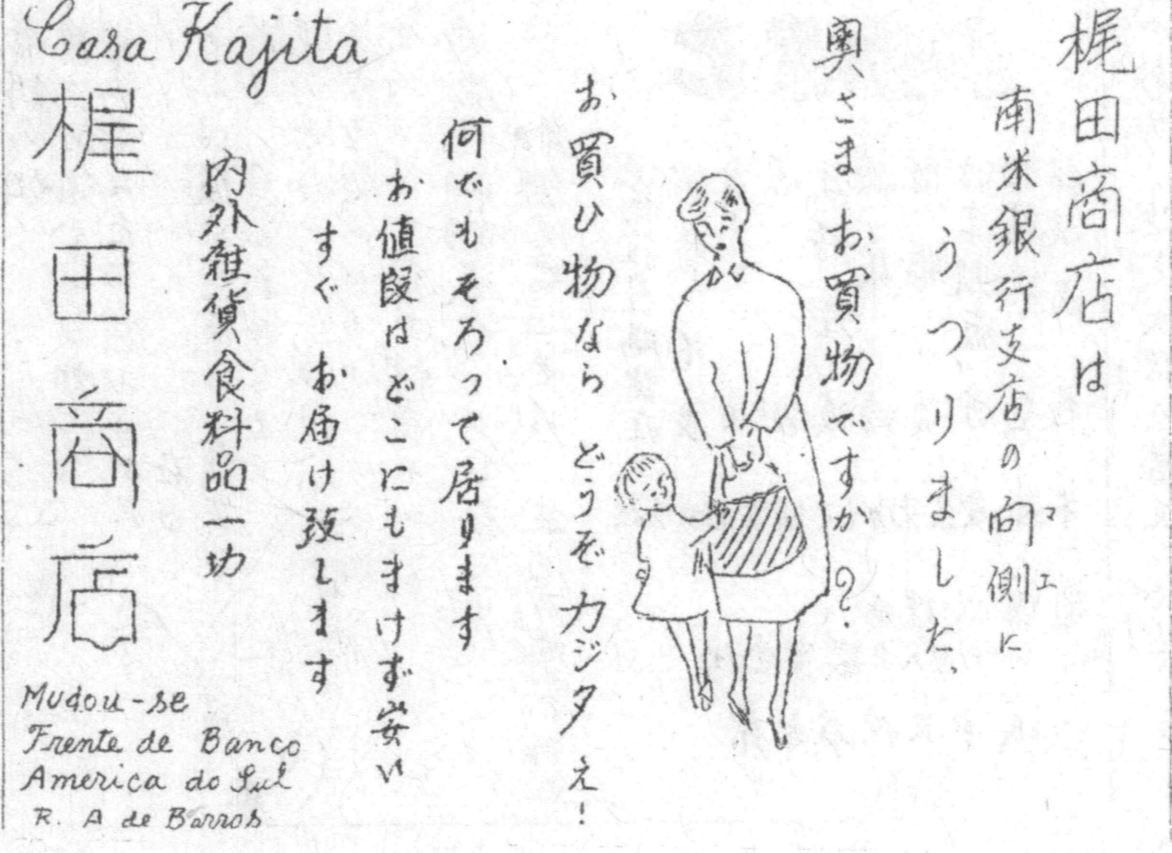 梶田商店は
南米銀行支店の向側に
マエ
うつりました、
奥さまお買物ですか?
お買ひ物なら どうぞカジタえ!
何でもそろって居ります
お値段はどこにもまけず安い
すぐ お届け致します
内外雑貨食料品一切
Casa Kajita
梶田商店
Mudou-se
Frente de Banco
America do Sul
R. A de Barros